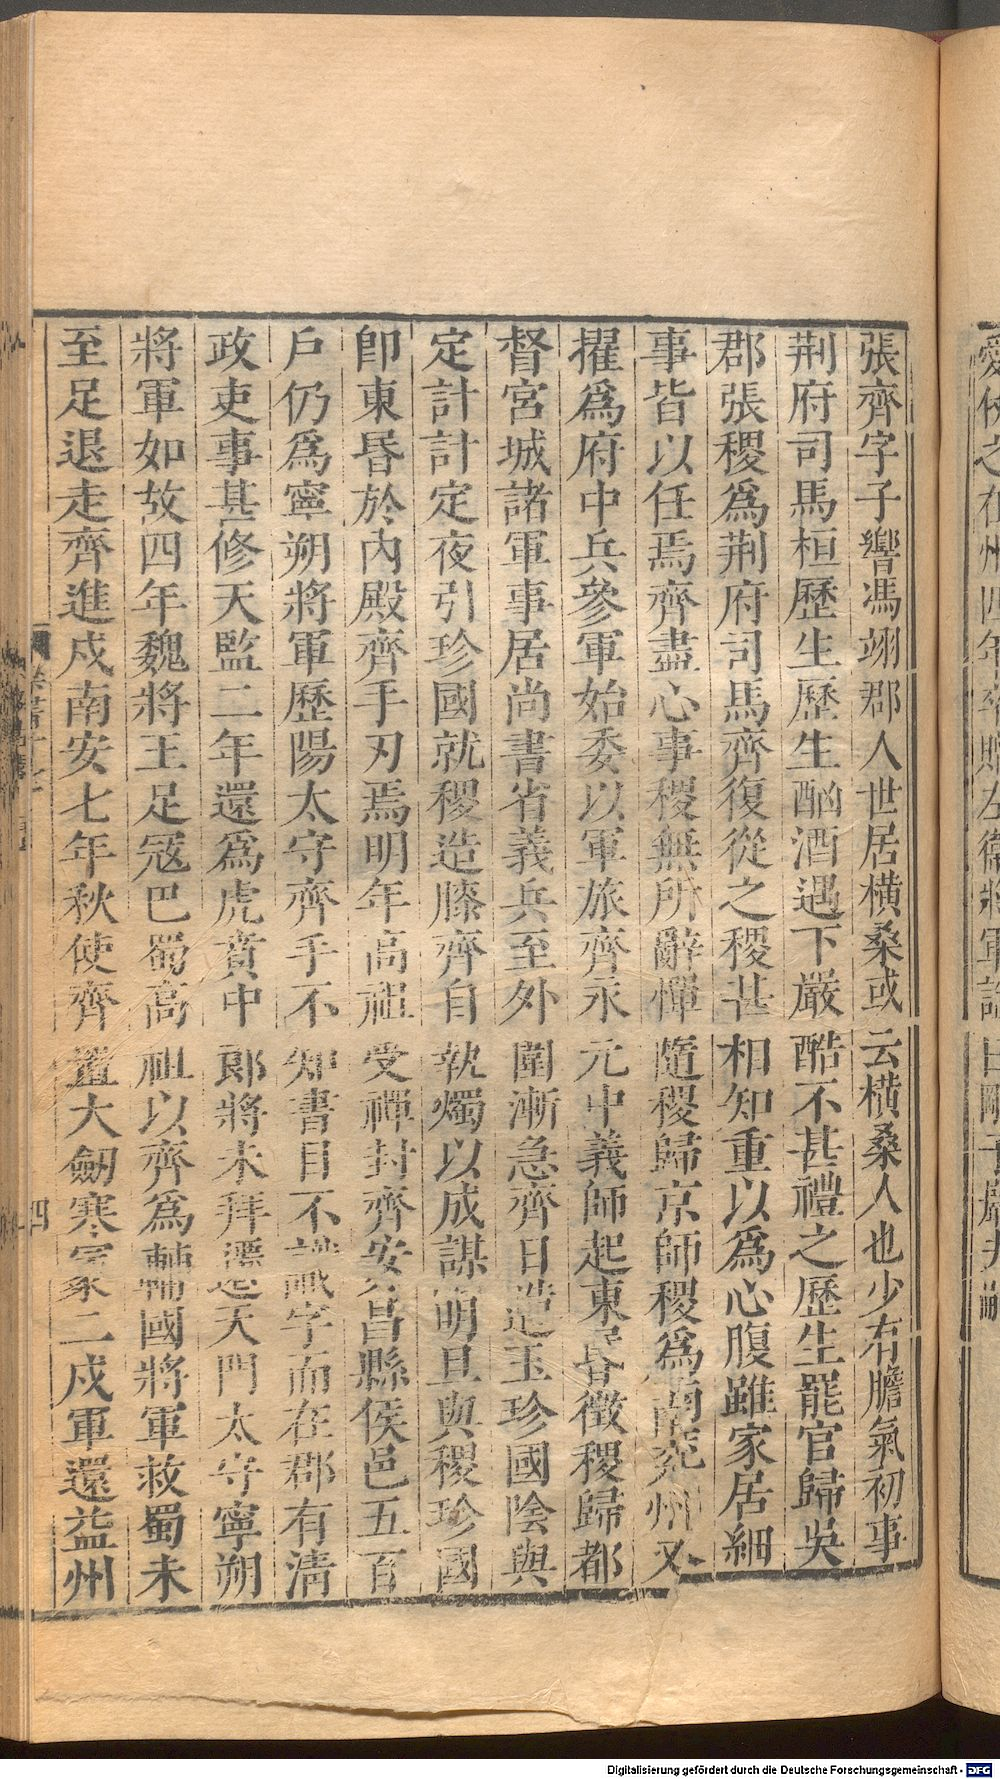 張齊字子響馮翊郡人世居橫桑或云橫桑人也少有膽氣初事
荆府司馬桓歷生歷生酗酒遇下嚴酷不甚禮之歷生罷官歸吳
郡張稷爲荆府司馬齊復從之稷甚相知重以爲心腹雖家居細
事皆以任焉齊盡心事稷無所辭憚隨稷歸京師稷爲南兗州又
擢爲府中兵參軍始委以軍旅齊永元中義師起東昏徵稷歸都
督宮城諸軍事居尚書省義兵至外圍漸急齊日造王珍國陰與
定計計定夜引珍國就稷造膝齊自執燭以成謀明旦與稷珍國
卽東昏於內殿齊手刃焉明年高祖受禪封齊安昌縣侯邑五百
戶仍爲寧朔將軍歷陽太守齊手不知書目不識字而在郡有清
政吏事甚修天監二年還爲虎賁中郎將未拜遷天門太守寧朔
將軍如故四年魏將王足寇巴蜀高祖以齊爲輔國將軍救蜀未
至足退走齊進戍南安七年秋使齊置大劒寒冢二戍軍還益州
四
Digitalisierung gefördert durch die Deutsche Forschungsgemeinschaft - DFG